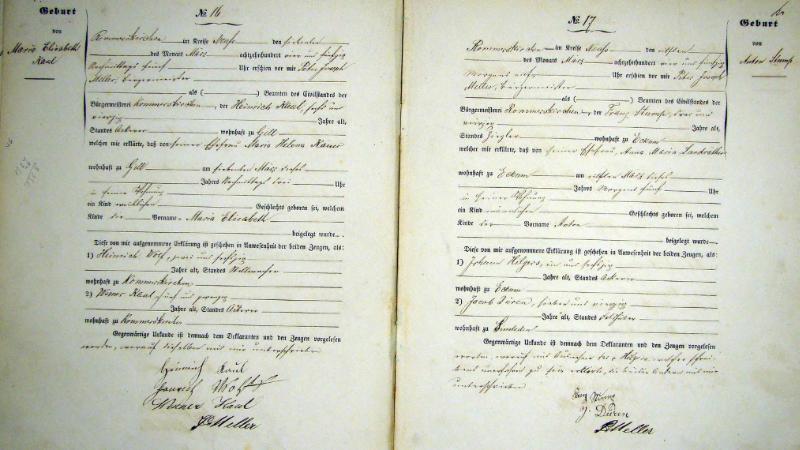 Geburt
von
Maria Elisabeth
Kaul
№ 16
Rommerskirchen im Kreise Neuss den siebenten
des Monats März achtzehnhundert vier und fünfzig
Nachmittags fünf Uhr erschien vor mir Peter Joseph
Meller, Bürgermeister
als ( ) Beamten des Civilstandes der
Bürgermeisterei Rommerskirchen, der Heinrich Kaul, sechs und
vierzig Jahre alt,
Standes Ackerer wohnhaft zu Gill
welcher mir erklärte, daß von seiner Ehefrau Maria Helena
wohnhaft zu Gill am siebenten März dieses
Jahres Nachmittags drei Uhr
in seiner Wohnung
ein Kind weiblichen Geschlechts geboren sei, welchem
Kinde der Vorname Maria Elisabeth
beigelegt wurde
Diese von mir aufgenommene Erklärung ist geschehen in Anwesenheit der beiden Zeugen, als:
1) Heinrich zwei und sechszig
Jahre alt, Standes
wohnhaft zu Rommerskirchen
2) Werner Kaul, fünf und
Jahre alt, Standes Ackerer
wohnhaft zu Rommerskirchen
Gegenwärtige Urkunde ist demnach dem Deklaranten und den Zeugen vorgelesen
worden, worauf dieselben mit mir unterschrieben
Heinrich Kaul
Werner Kaul
PJMeller
№ 17
Geburt
von
Anton Stump
Rommerskirchen im Kreise Neuss den elften
des Monats März achtzehnhundert vier und fünfzig
Morgens Uhr erschien vor mir Peter Joseph
Meller, Bürgermeister
als ( ) Beamten des Civilstandes der
Bürgermeisterei Rommerskirchen, der Franz drei und
vierzig Jahre alt,
Standes Ziegler wohnhaft zu Eckum
welcher mir erklärte, daß von seiner Ehefrau, Anna Maria
wohnhaft zu Eckum am elften März dieses
Jahres Morgens fünf Uhr
in seiner Wohnung
ein Kind männlichen Geschlechts geboren sei, welchem
Kinde der Vorname Anton
beigelegt wurde
Diese von mir aufgenommene Erklärung ist geschehen in Anwesenheit der beiden Zeugen, als:
1) Johann Hilgers, ein und sechszig
Jahre alt, Standes Ackerer
wohnhaft zu Eckum
2) Jacob Düren, sieben und vierzig
Jahre alt, Standes
wohnhaft zu
Gegenwärtige Urkunde ist demnach dem Deklaranten und den Zeugen vorgelesen
worden, worauf mit Ausnahme des Hilgers, welcher
unerfahren zu sein erklärte, die beiden Andern mit mir
unterschrieben
J. Düren
PJMeller